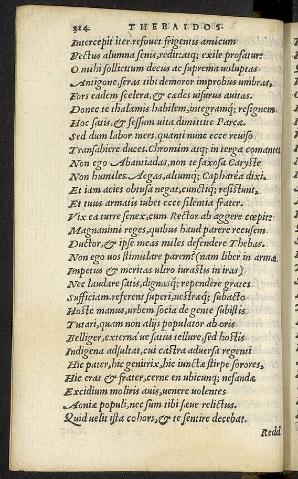 324 THEBAIDOS
Intercepit iter, refouet frigentis amicum
Pectus alumna senis, reditaq; exile profatur:
O mihi sollicitum decus ac suprema voluptas
Antigone, seras tibi demoror improbus umbras,
Fors eadem scelera, & cædes visurus auitas.
Donec te thalamis habilem, integramq; resignem
Hoc satis, & fessum vita dimittite Parcæ.
Sed dum labor iners, quanti nunc ecce reuiso
Transabiere duces. Chromim atq; in terga comantis
Non ego Abantiadas, non te saxosa Caryste
Non humiles Aegas, alumq; Capharea dixi.
Et iam acies obtusa negat, cunctiq; resistunt,
Et tuus armatis iubet ecce silentia frater.
Vix ea turre senex, cum Rector ab aggere cœpit:
Magnanimi reges, quibus haud parere recusem
Ductor, & ipse meas miles defendere Thebas.
Non ego vos stimulare parem (nam liber in arma
Impetus & meritas ultro iurastis in iras)
Nec laudare satis, dignasq; rependere grates
Sufficiam. referent superi, vestræq; subacto
Hoste manus, urbem socia de gente subistis
Tutari, quam non alijs populator ab oris
Belliger, externa ue satus tellure, sed hostis
Indigena adsultat, cui castra aduersa regenti
Hic pater, hic genitrix, hic iuncta stirpe sorores,
Hic eras & frater, cerne en ubicunq; nefandus
Excidium moliris auis, venere volentes
Aoniæ populi, nec sum tibi sæue relictus.
Quid velit ista cohors, & te sentire decebat.
Redd